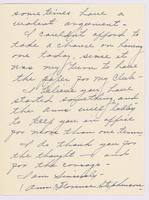 sometimes have a
violent argument -
I couldn't afford to
take a chance on having
one today, since it
was my turn to have
the safe for my Club -
I believe you have
started something and
the arms will likely
to keep you in office
for more than one term
I do thank you for
the thought - and
for the courage -
I am Sincerely -
Ann Stephenson